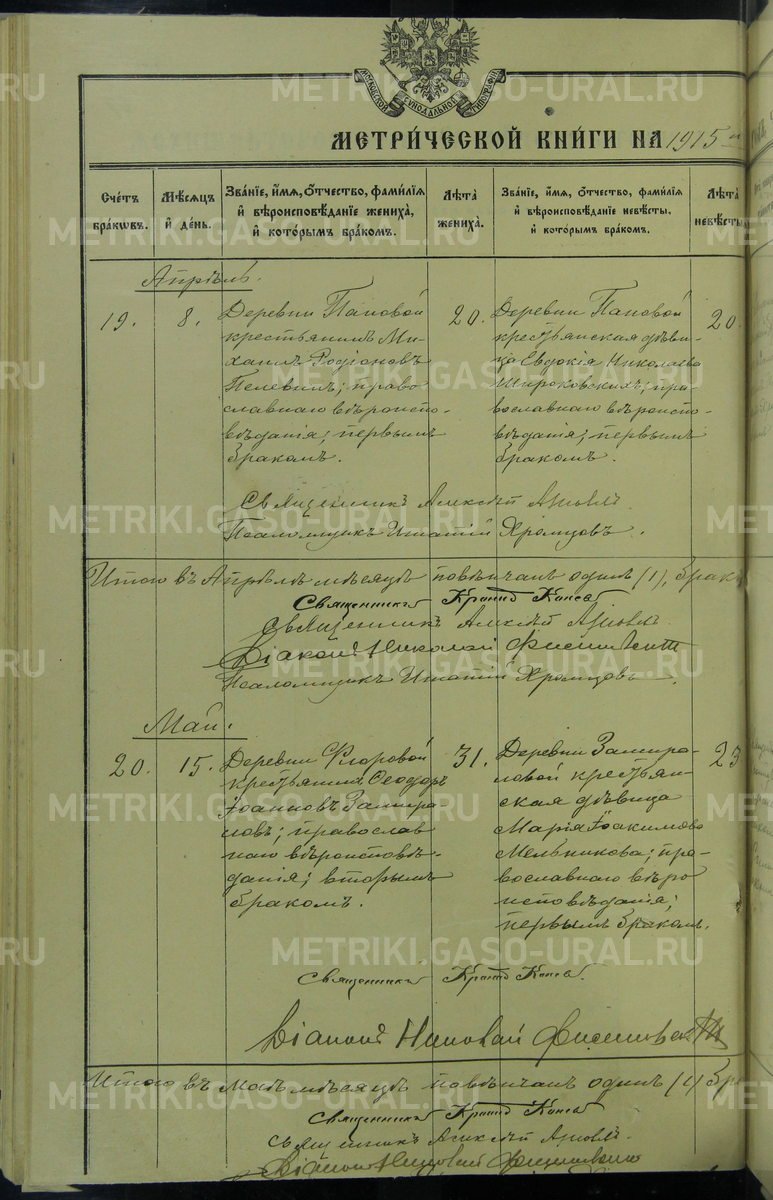 МОСКОВСКОЙ СѴНОДАЛЬНОЙ ТИПОГРАФІИ
МЕТРИ́ЧЕСКОЙ КНИ́ГИ НА 1915
Сче́тъ бра́ковъ.
Мѣ́сяцъ и́ де́нь.
Зва́нїе, и́мя, о́тчество, фами́лїя и́ вѣроисповѣ́данїе жениха̀, и́ кото́рымъ бра́комъ.
Лѣ́та жениха̀.
Зва́нїе, и́мя, о́тчество, фами́лїя и́ вѣроисповѣ́данїе невѣ́сты, и́ кото́рымъ бра́комъ.
Лѣ́та невѣ́сты
Апрѣль.
19.
8.
Деревни Пановой
крестьянинъ Ми-
хаилъ Родіоновъ
Пелевинъ; право
славнаго вѣроиспо-
вѣданія; первымъ
бракомъ.
20.
Деревни Пановой
крестьянская дѣви-
ца Евдокія Николаева
Широковскихъ; пра-
вославнаго вѣроиспо-
вѣданія; первымъ
бракомъ.
20
Священникъ Алексѣй
Псаломщикъ Игнатій Хромцовъ.
Итого въ Апрѣлѣ мѣсяцѣ повѣнчанъ одинъ (1), бракъ
Священникъ
Священникъ Алексѣй
Діаконъ Николай
Псаломщикъ Игнатій Хромцовъ.
Май.
20.
15.
Деревни Фроровой
крестьянинъ Ѳеодоръ
Іоанновъ Замира-
ловъ; православ
наго вѣроисповѣ-
данія; вторымъ
бракомъ.
31.
Деревни Замира-
ловой крестьян-
ская дѣвица
Марія Іоакимова
Мельникова; пра-
вославнаго вѣро
исповѣданія;
первымъ бракомъ.
23
Священникъ
Діаконъ Николай
Итого въ Маѣ мѣсяцѣ повѣнчанъ одинъ (1) бра
Священникъ
Священникъ Алексѣй
Діаконъ Николай
METRIKI.GASO-URAL.RU